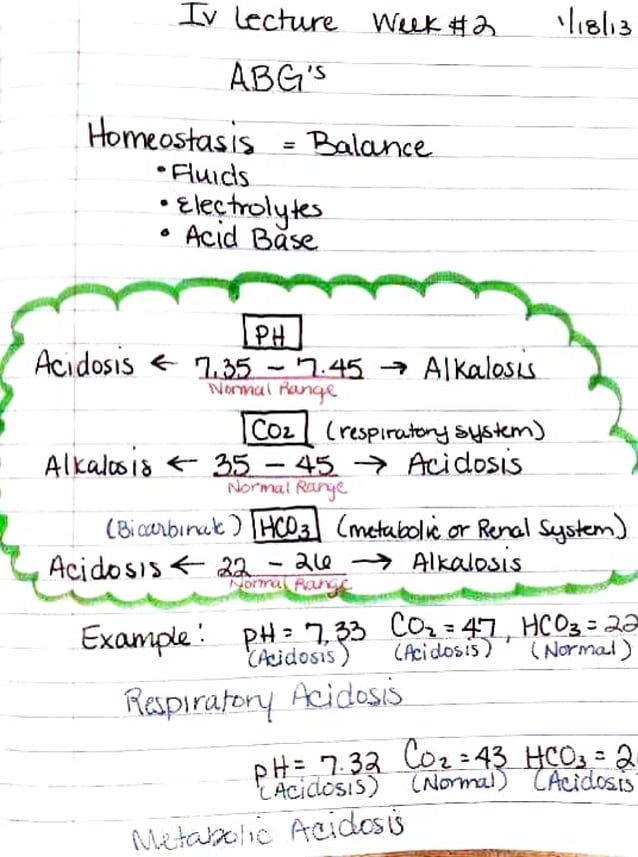 Iv Lecture Week #2 1/18/13
ABG's
Homeostasis = Balance
• Fluids
• Electrolytes
• Acid Base
PH
Acidosis ← 7.35 – 7.45 → Alkalosis
Normal Range
CO2 (respiratory system)
Alkalosis ← 35 – 45 → Acidosis
Normal Range
(Bicarbinate) HCO3 (metabolic or Renal System)
Acidosis ← 22 – 26 → Alkalosis
Normal Range
Example: pH = 7.33 CO2 = 47, HCO3 = 22
(Acidosis) (Acidosis) (Normal)
Respiratory Acidosis
pH = 7.32 CO2 = 43 HCO3 = 2
(Acidosis) (Normal) (Acidosis
Metabolic Acidosis